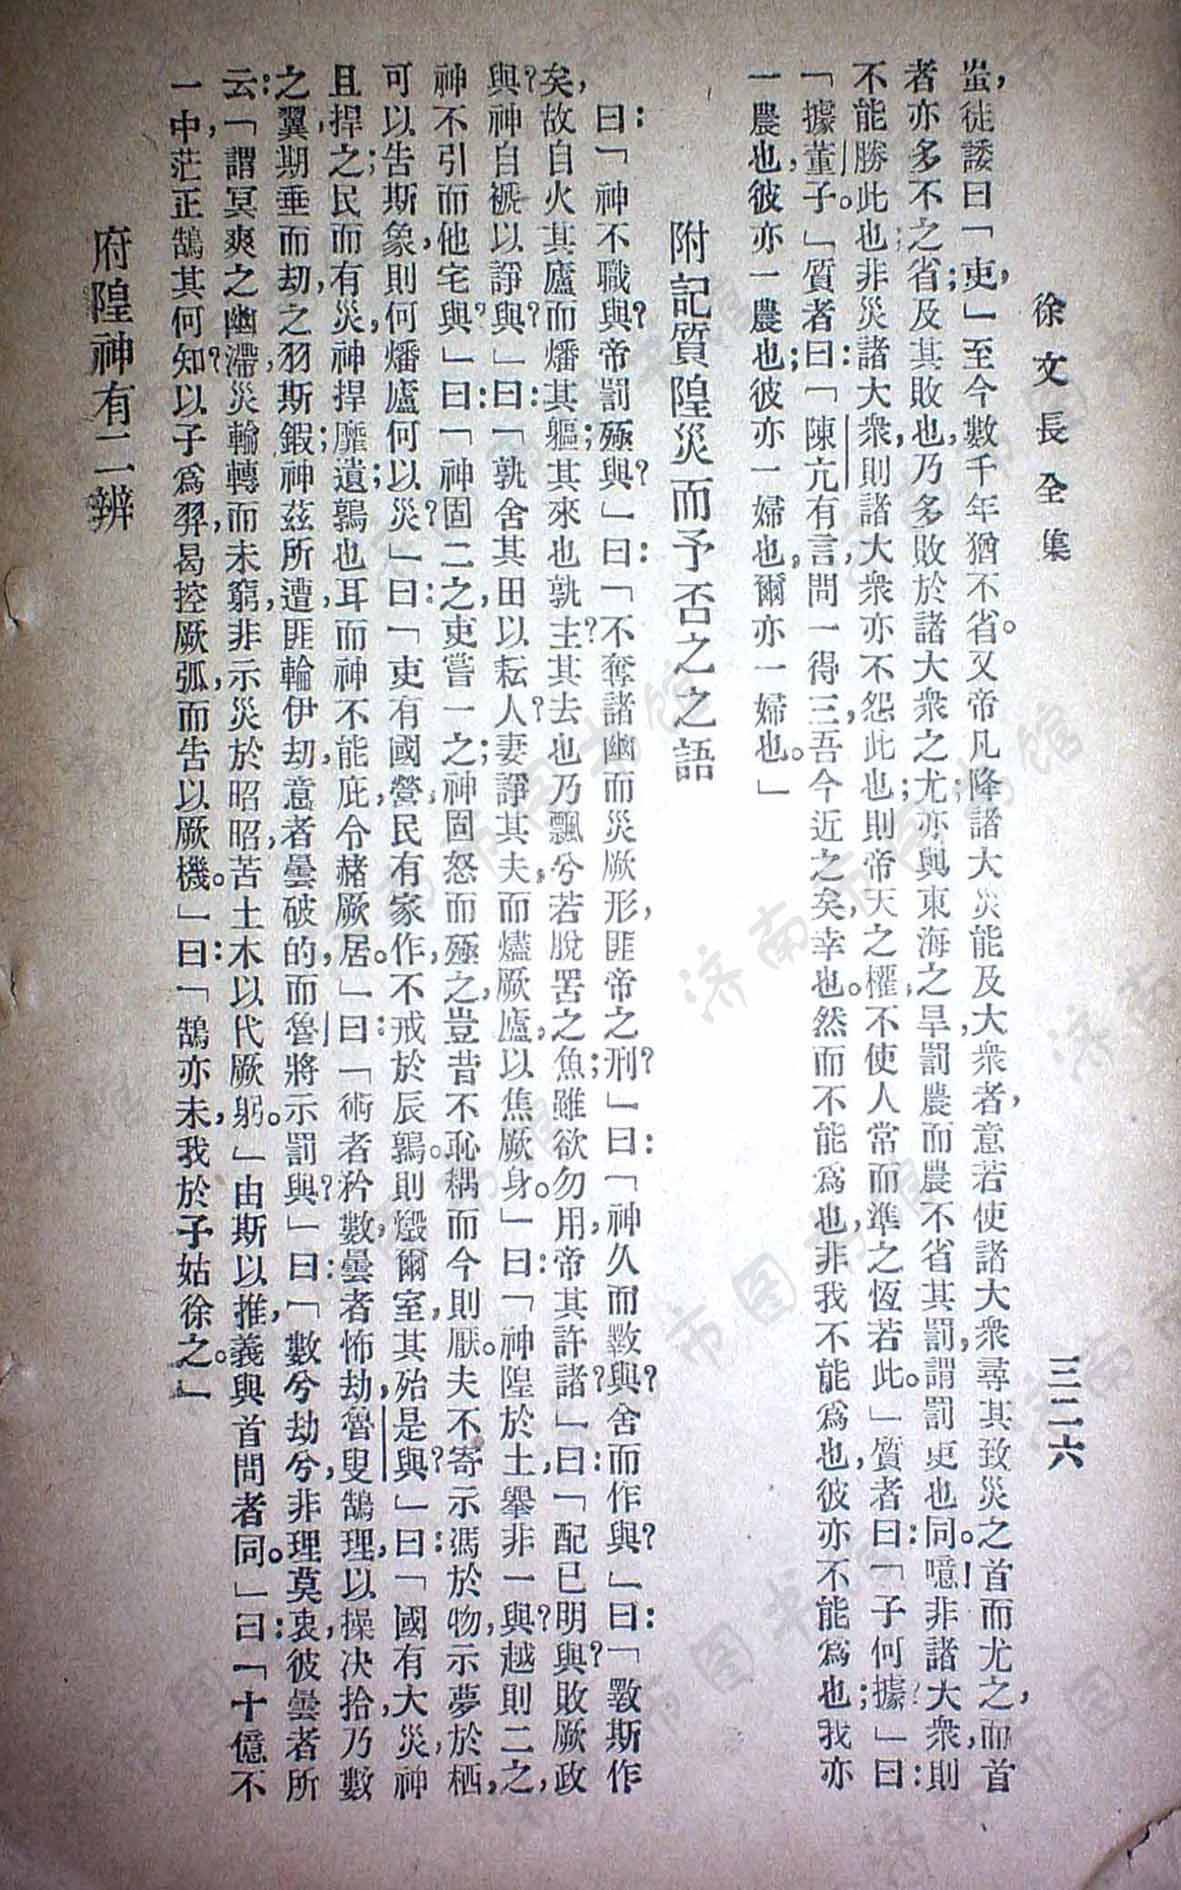 徐文長全集
三二六
蚩徒諉曰「吏，」至今數千年猶不省。又帝凡降諸大災，能及大衆者，意若使諸大衆尋其致災之首而尤之，而首
者亦多不之省；及其敗也，乃多敗於諸大衆之尤；亦與東海之旱，罰農而農不省其罰，謂罰吏也同。噫！非諸大衆則
不能勝此也。非災諸大衆，則諸大衆亦不怨此也，則帝天之權，不使人常而準之恆若此。」質者曰：「子何據？」曰：
「據董子。」質者曰：「陳亢有言，問一得三，吾今近之矣，幸也。然而不能爲也，非我不能爲也，彼亦不能爲也；我亦
一農也，彼亦一農也；彼亦一婦也，爾亦一婦也。」
附記質隍災而予否之之語
曰：「神不職與？帝罰殛與？」曰：「不奪諸幽而災厥形，匪帝之刑。」曰：「神久而斁與？舍而作與？」曰：「斁斯作
矣，故自火其廬而燔其軀；其來也孰主？其去也乃飄兮若脫罟之魚；雖欲勿用，帝其許諸？」曰：「配已明與？敗厥政
與？神自褫以諍與？」曰：「孰舍其田以耘人？妻諍其夫，而燼厥廬，以焦厥身。」曰：「神隍於土，舉非一與？越則二之，
神不引而他宅與？」曰：「神固二之，吏嘗一之；神固怒而殛之，豈昔不恥耦而今則厭。夫不寄示馮於物，示夢於栖，
可以告斯象，則何燔廬何以災？」曰：「吏有國營，民有家作，不戒於辰，鶉則燬爾室，其殆是與？」曰：「國有大災，神
且捍之；民而有災，神捍靡遺，鶉也耳，而神不能庇，令赭厥居。」曰：「術者矜數，曇者怖劫，魯叟鵠理，以操決拾，乃數
之翼，期垂而劫之羽，斯鍜神茲所遭，匪輪伊劫，意者曇破的而魯將示罰與？」曰：「數兮劫兮，非理莫衷，彼曇者所
云：「謂冥爽之幽滯，災輪轉而未窮，非示災於昭昭，苦土木以代厥躬。」由斯以推，義與首問者同。」曰：「十億不
一中，茫正鵠其何知？以子爲羿，曷控厥弧，而告以厥機。」曰：「鵠亦未我於，子姑徐之。」
府隍神有二辨